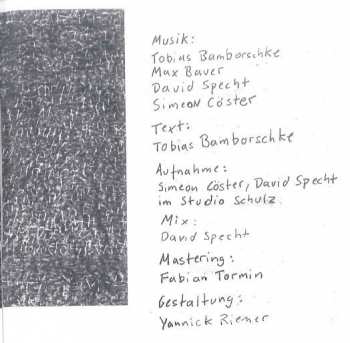 Musik:
Tobias Bamborschke
Max Bauer
David Specht
Simeon Cöster
Text:
Tobias Bamborschke
Aufnahme:
Simeon Cöster, David Specht
im Studio Schulz.
Mix:
David Specht
Mastering:
Fabian Tormin
Gestaltung:
Yannick Riemer